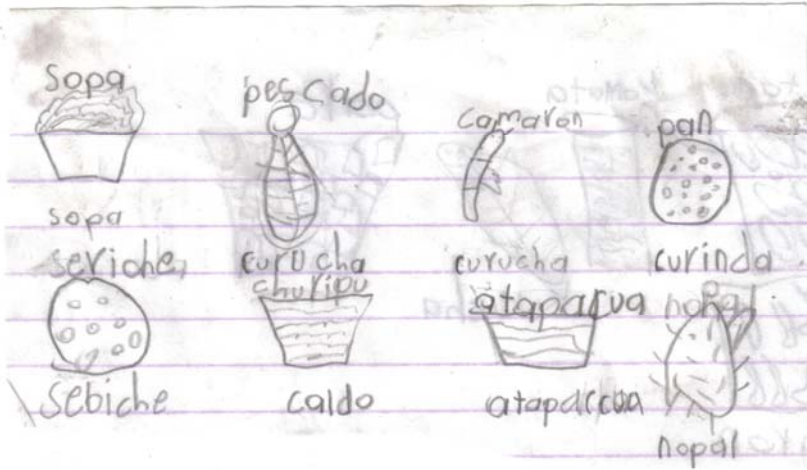 sopa
pescado
camaron
pan
sopa
curucha
curucha
curinda
seviche
churipu
atapacua
nopal
sebiche
caldo
atapaccua
nopal